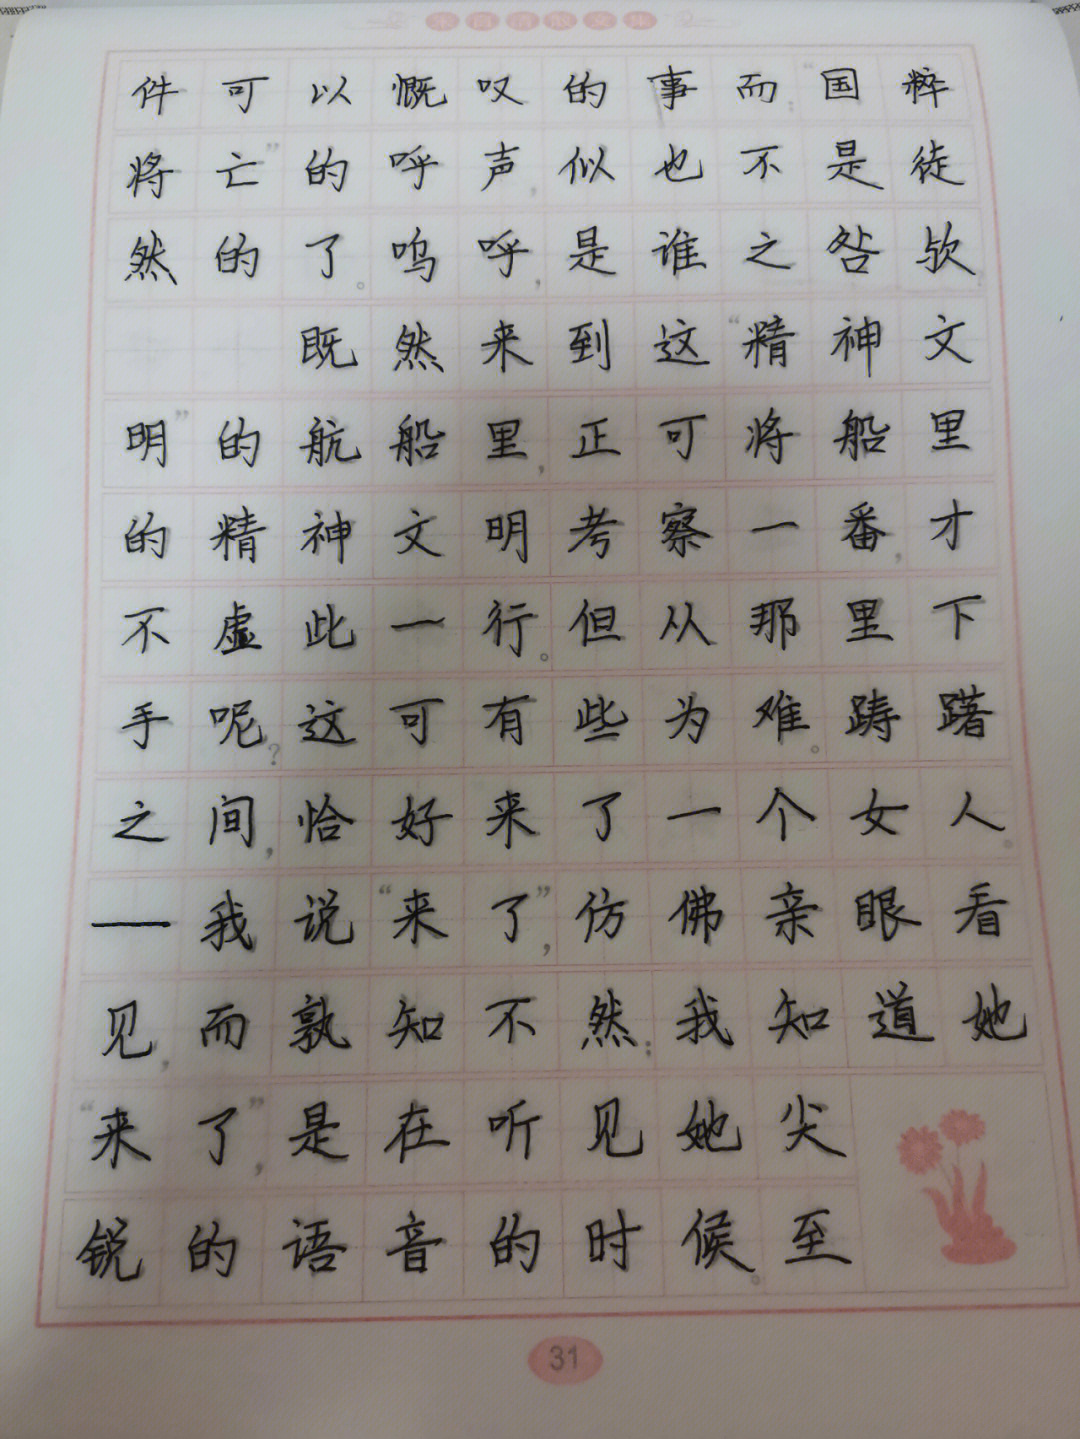 朱自清散文集
件可以慨叹的事而;“国粹
将亡”的呼声,似也不是徒
然的了。呜呼,是谁之咎欤
既然来到这“精神文
明”的航船里,正可将船里
的精神文明考察一番,才
不虚此一行。但从那里下
手呢?这可有些为难。踌躇
之间,恰好来了一个女人。
——我说“来了”,仿佛亲眼看
见,而孰知不然;我知道她
“来了”,是在听见她尖
锐的语音的时候。至
31